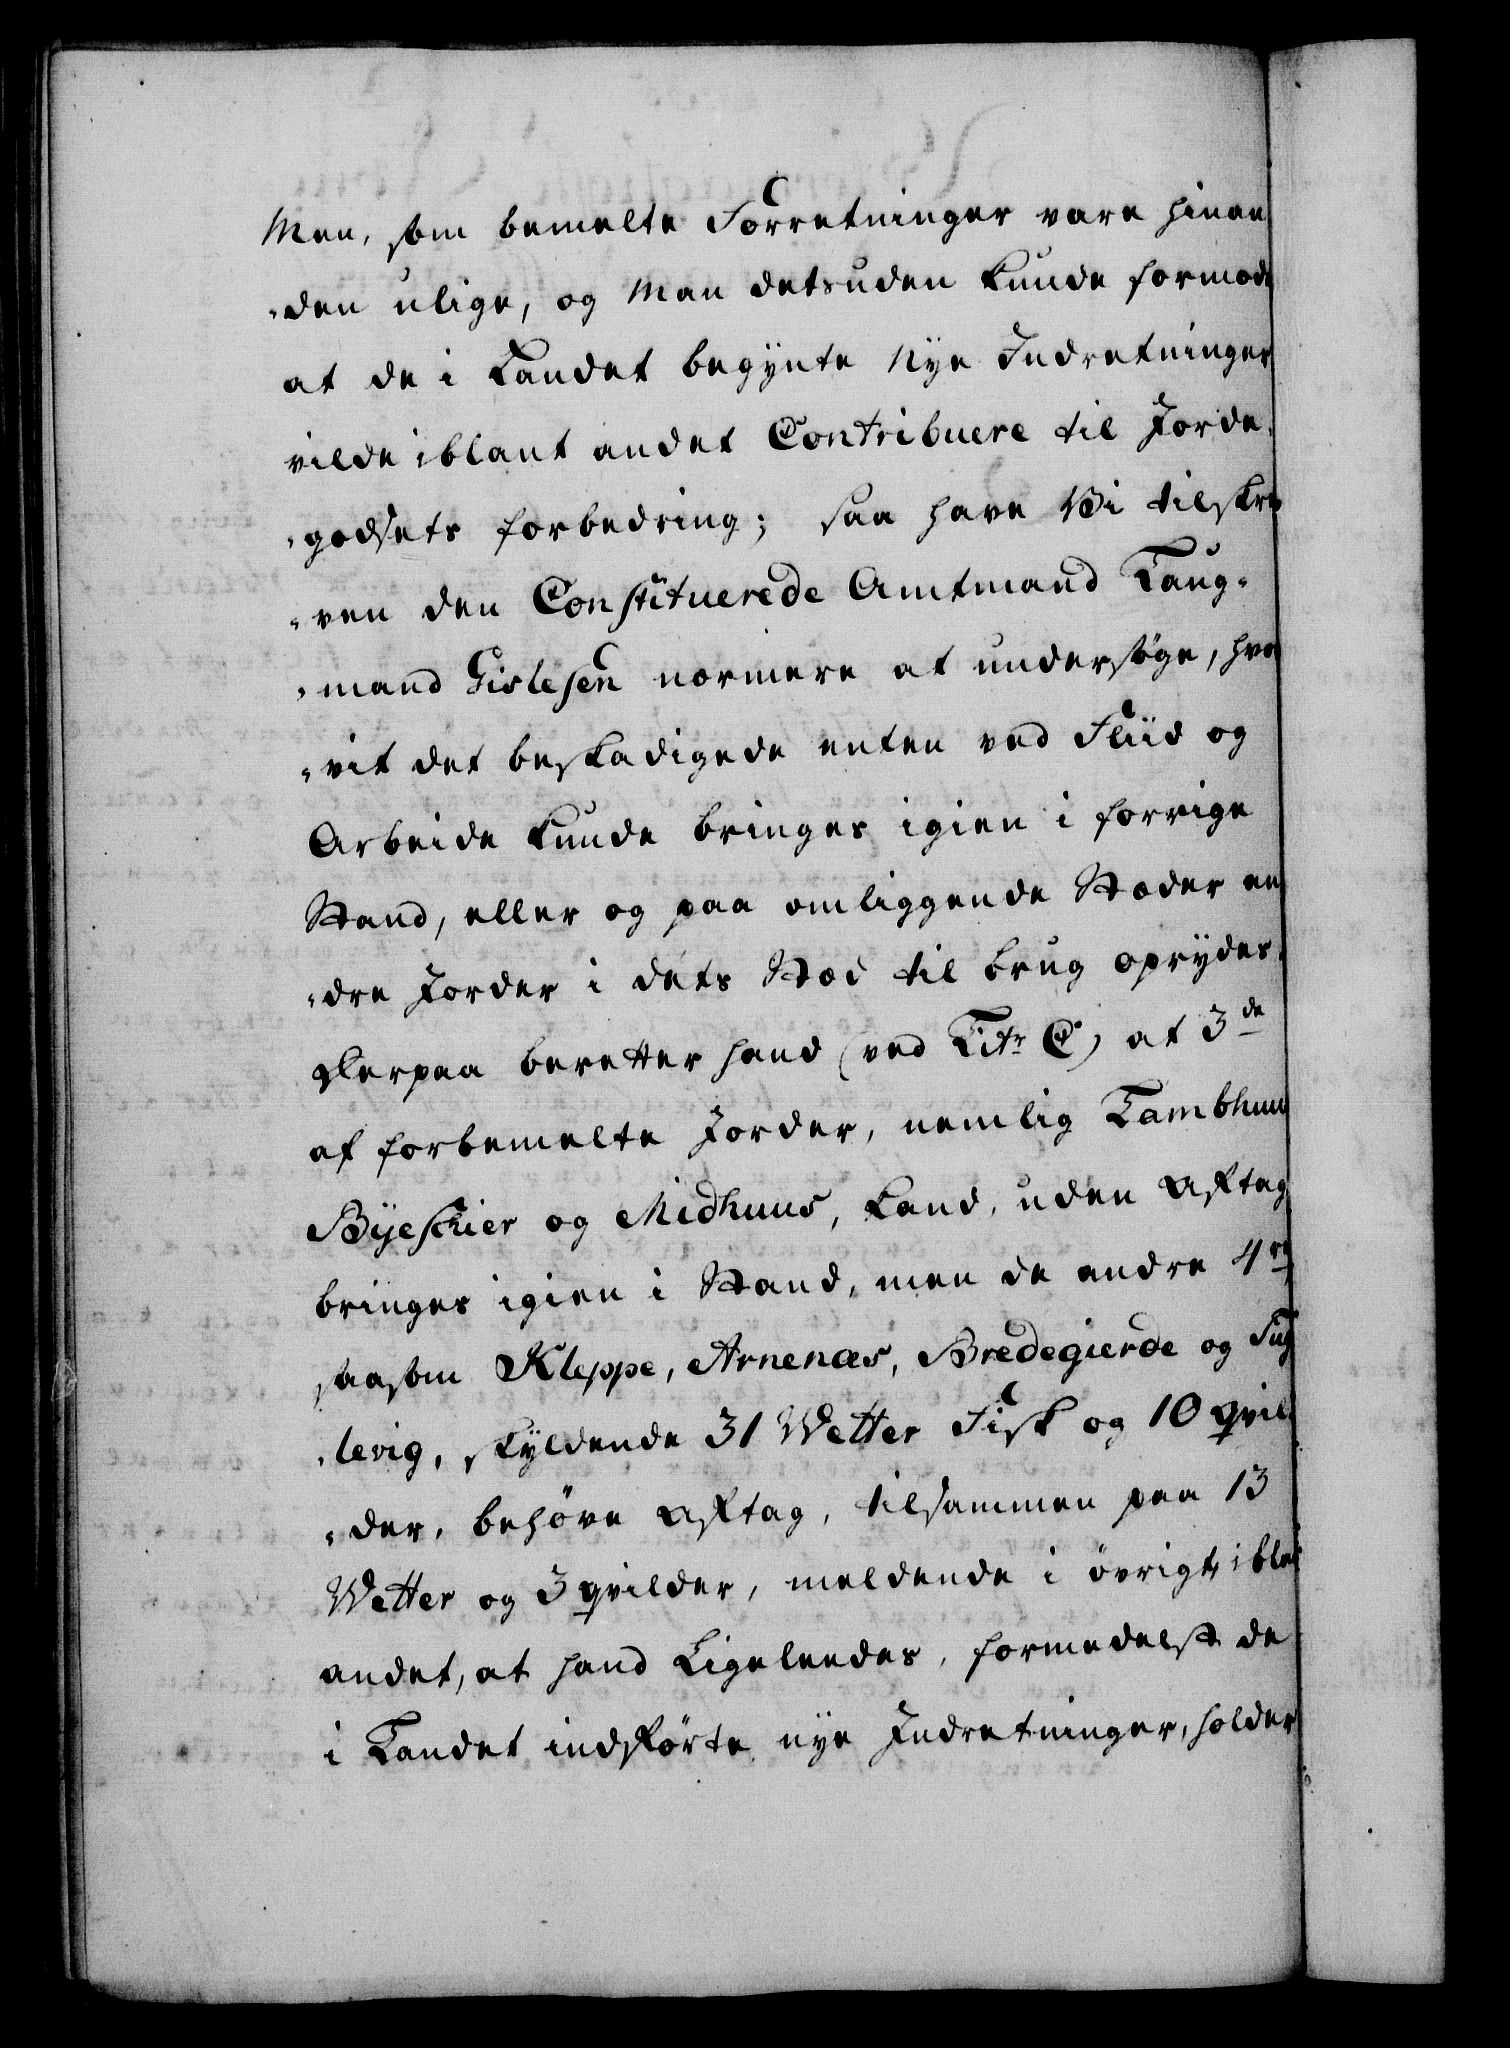 Men, som bemelte Forretninger vare hinan
-den ulige, og Man detsuden kunde formode
at de i Landet begynte Nye Indretninger
vilde iblant andet Contribuere til Jorde-
-godsets forbedring; saa have Vi tilskre
-ven den Constituerede Amtmand Laug-
-mand Gislesen nærmere at undersøge, hvor
-vit det beskadigede enten ved Fliid og
Arbeide kunde bringes igien i forrige
Stand, eller og paa omliggende Stæder an
-dre Jorder i dets Stæd til brug oprydes.
Herpaa beretter hand (ved Litr C) at 3de
af forbemelte Jorder, nemlig Lambhuus
Byeskier og Midhuus, kand, uden Aftag
bringes igien i Stand, men de andre 4re
saasom Kleppe, Arnenæs, Bredegierde og Fug
-levig, skyldende 31 Wetter Fisk og 10 qvil
-der, behøve Aftag, tilsammen paa 13
Wetter og 3 qvilder, meldende i øvrigt iblant
andet, at hand Ligeleedes, formedelst de
i Landet indførte nye Indretninger, holder